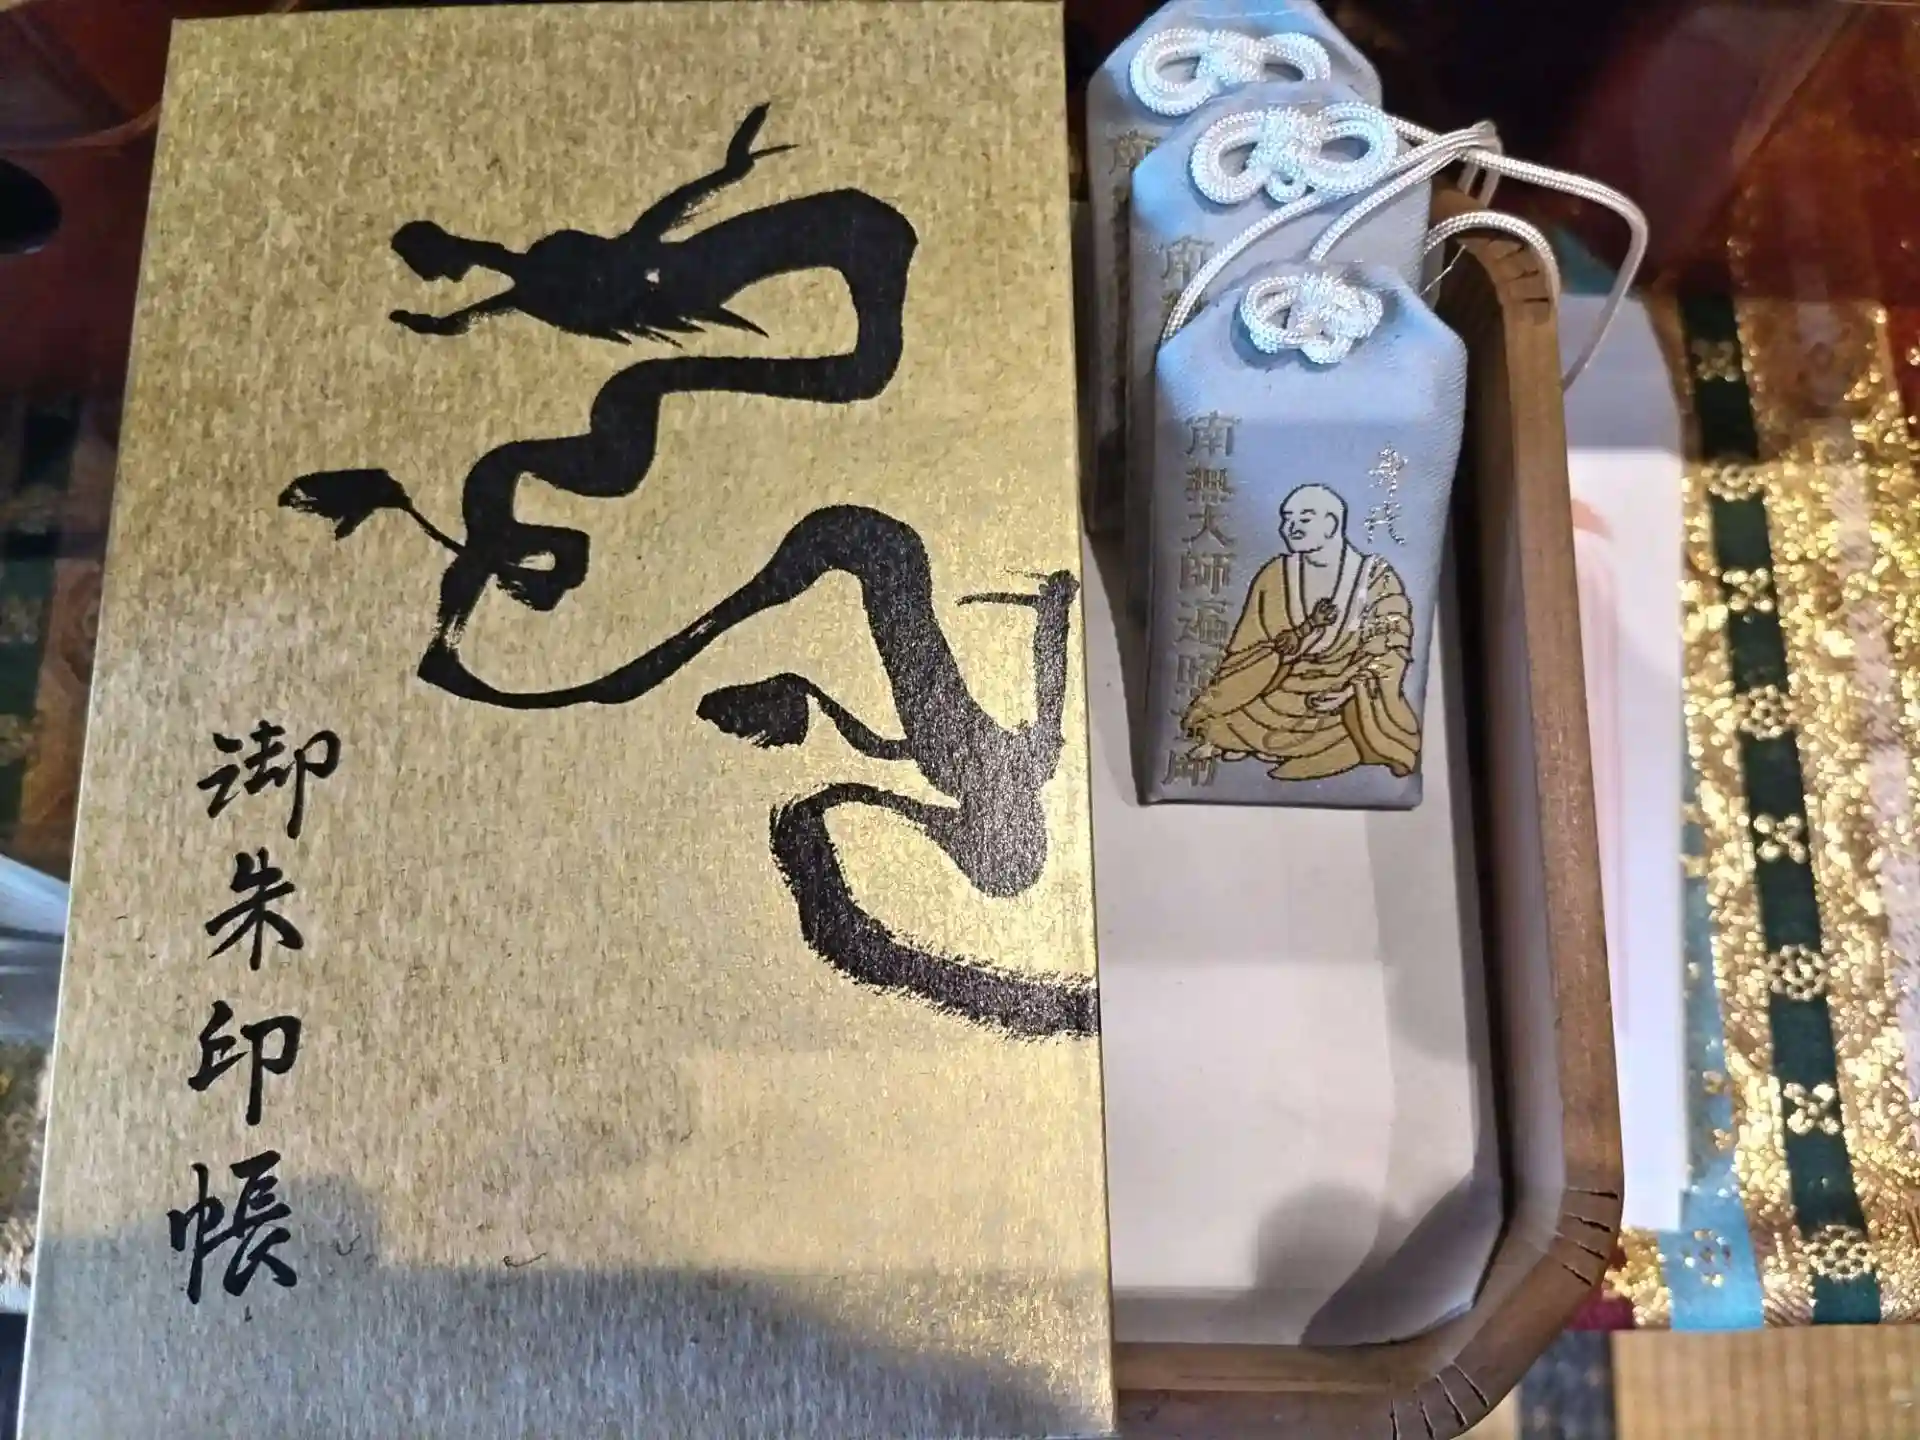 御朱印帳
南無大師遍照金剛
身代
南無
南